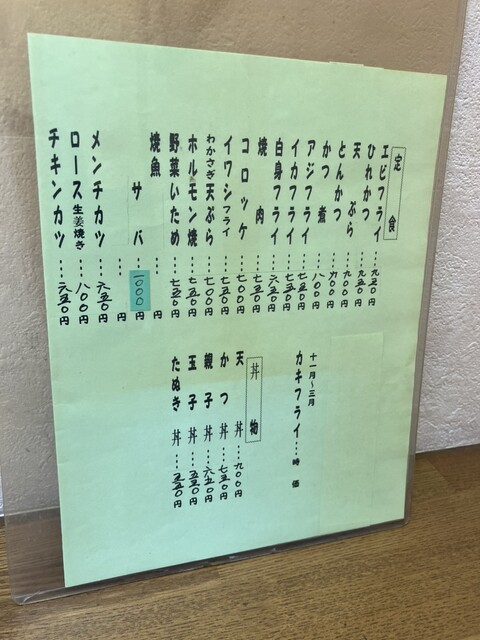 定食
エビフライ…九五〇円
ひれかつ…九五〇円
天ぷら…九〇〇円
とんかつ…九〇〇円
かつ煮…八〇〇円
アジフライ…七五〇円
イカフライ…七五〇円
白身フライ…六五〇円
焼肉…七五〇円
コロッケ…七〇〇円
イワシフライ…七五〇円
わかさぎ天ぷら…七〇〇円
ホルモン焼…七五〇円
野菜いため…七五〇円
焼魚…円
サバ…一〇〇〇円
…円
メンチカツ…六五〇円
ロース生姜焼き…八〇〇円
チキンカツ…六五〇円
十一月～三月
カキフライ…時価
丼物
天丼…九〇〇円
かつ丼…七五〇円
親子丼…六五〇円
玉子丼…五五〇円
たぬき丼…五五〇円